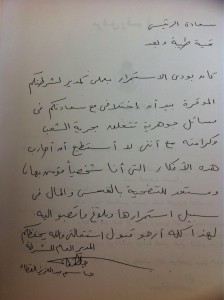 سعادة الرئيس
تحية طيبة وبعد
كان بودي الاستمرار بعملي كمدير لشرطتكم
الموقرة بيد أنه اختلافي مع سعادتكم في
مسائل جوهرية تتعلق بحرية الشعب
وكرامته مع أنني لا أستطيع أن أجاري
هذه الأفكار التي أنا شخصياً مؤمن بها
ومستعد للتضحية بالنفس والمال في
سبيل استمرارها وبلوغ ما تصبو اليه
لهذا كله أرجو قبول استقالتي والله يحفظكم
المدير العام للشرطة
جاسم عبد العزيز القطامي